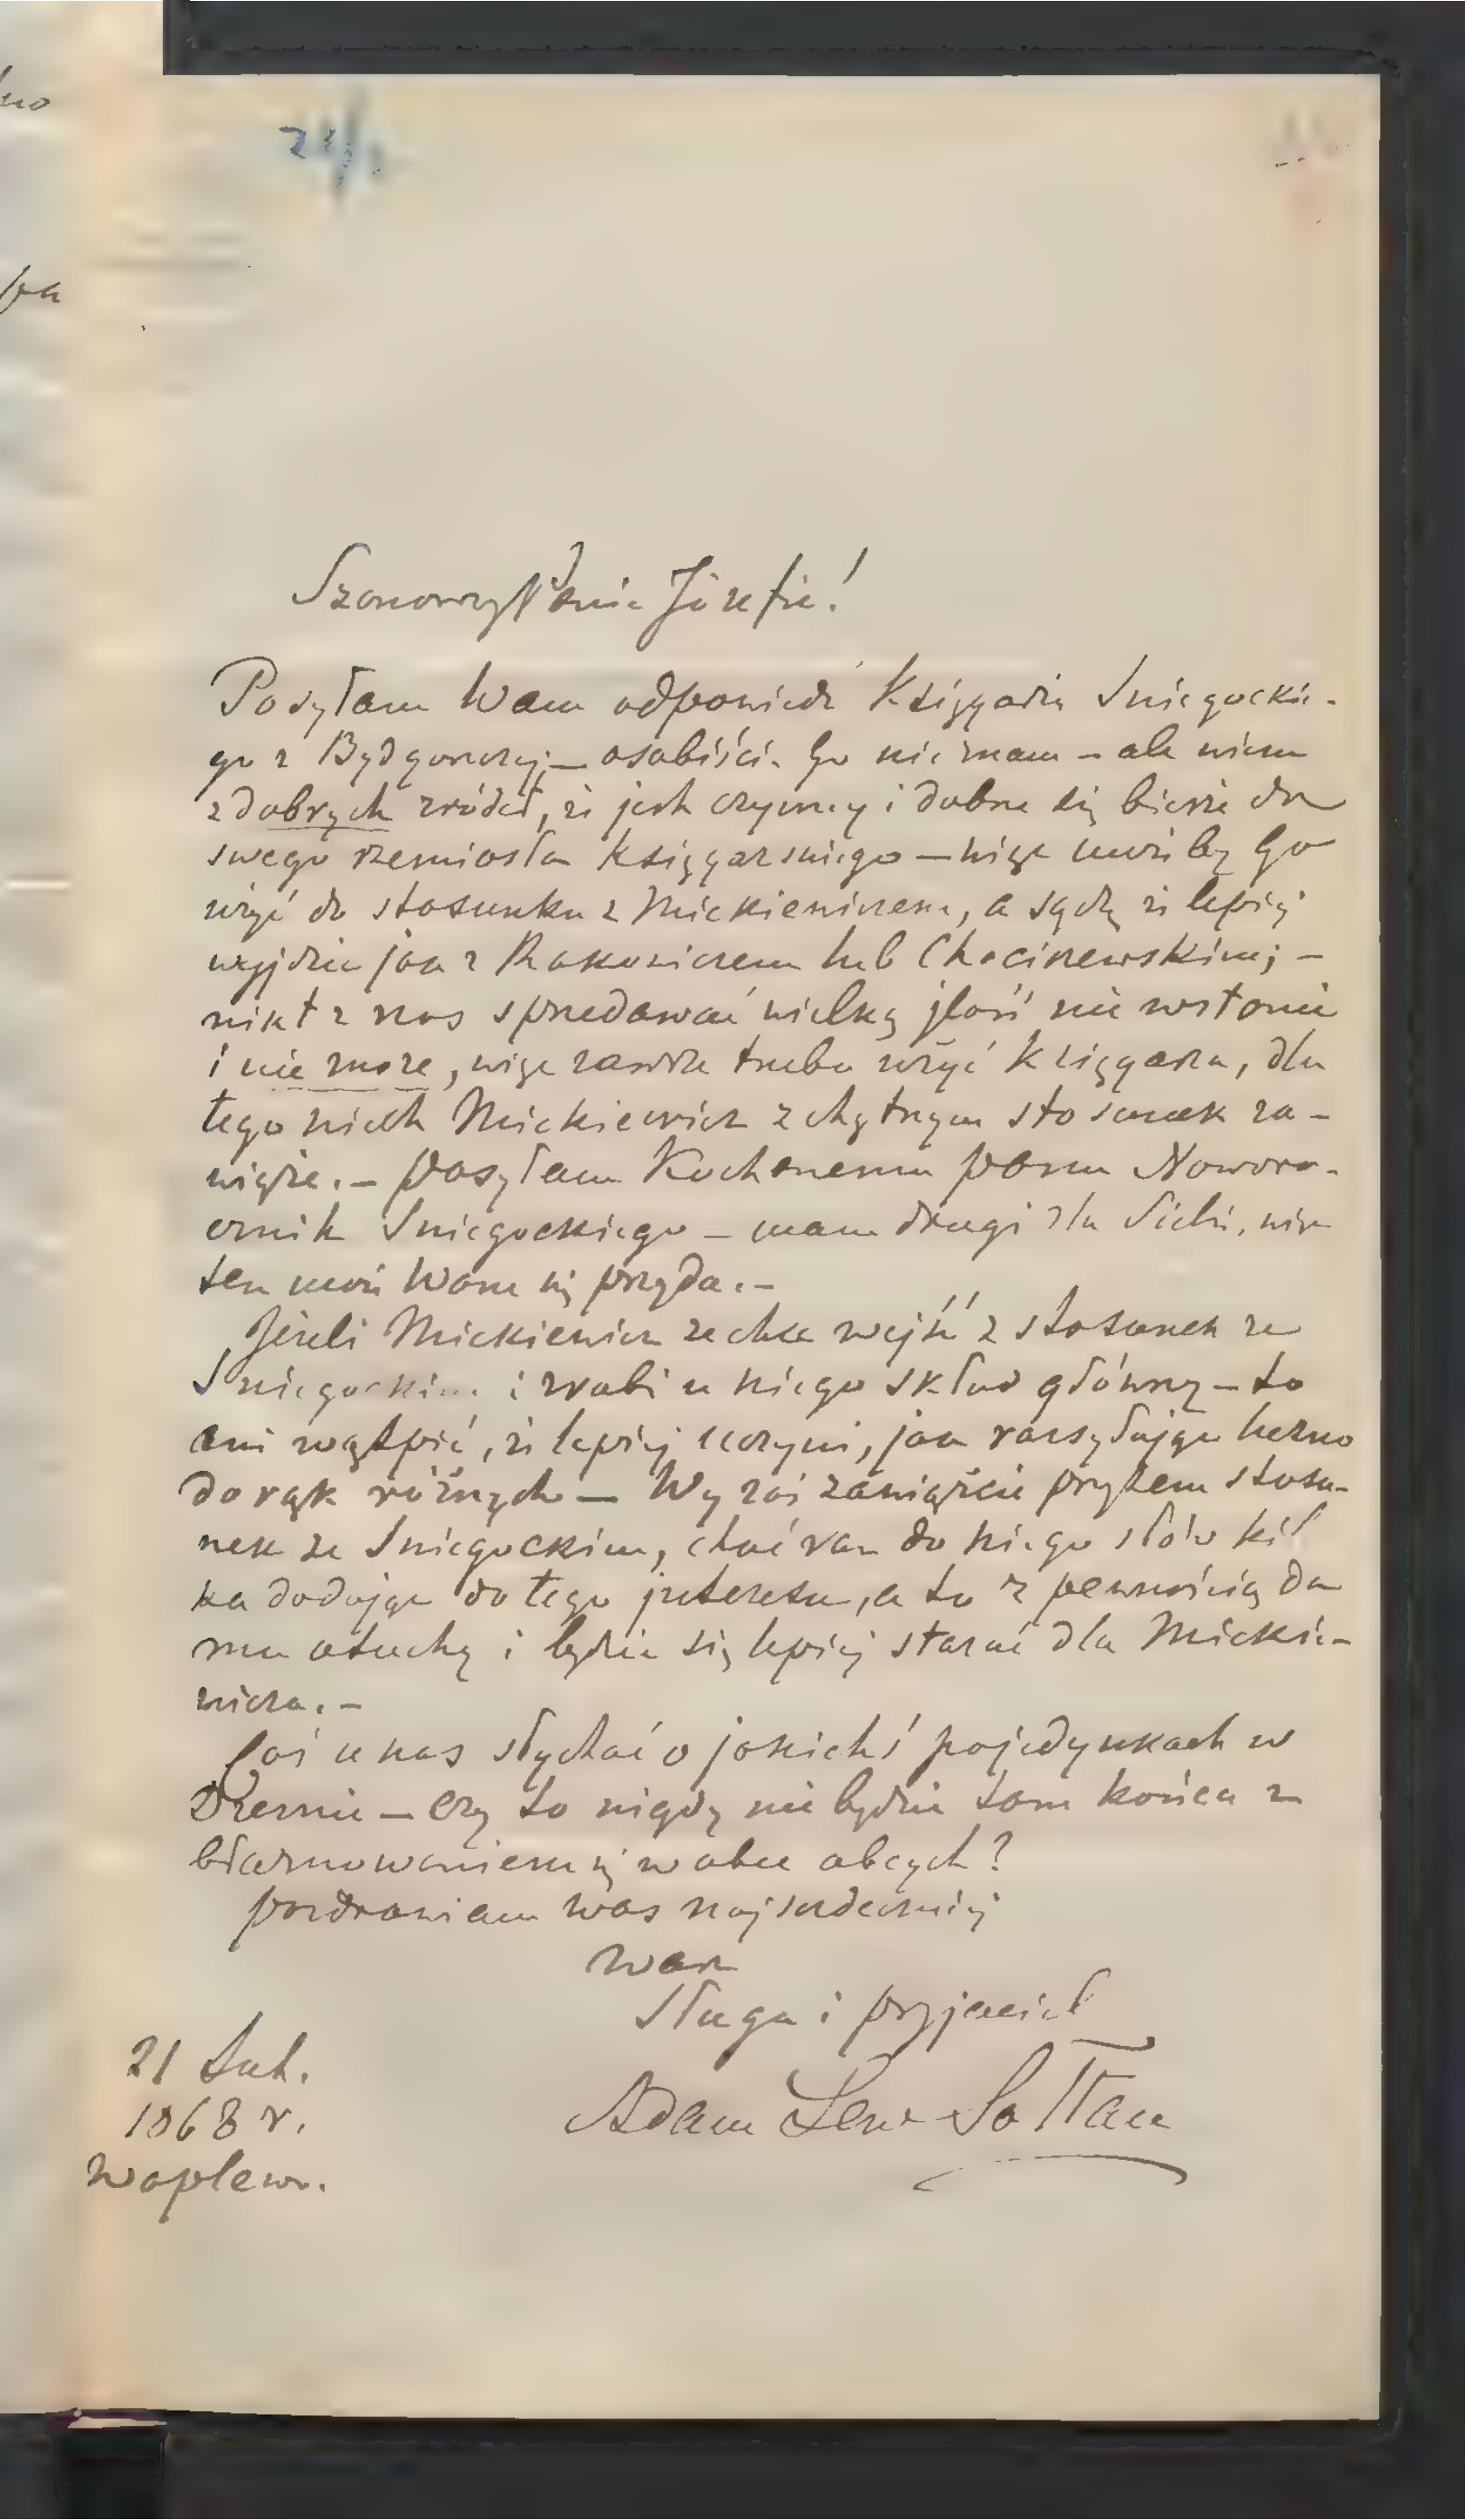 no
pa
Szanowny Panie Józefie!
Posyłam Wam odpowiedź Księgarza Śniegockie-
go z Bydgoszczy; — osobiście Go nie znam — ale wiem
z dobrych źródeł, że jest czynny i dobrze się bierze do
swego rzemiosła księgarskiego — więc możeby Go
użyć do stosunku z Mickiewiczem, a sądzę że lepiej
wyjdzie jak z Rakowiczem lub Chociszewskim; —
nikt z nas sprzedawać wielką ilość nie wstanie
i nie może, więc zawsze trzeba użyć księgarza, dla
tego niech Mickiewicz z chętnym stosunek za-
wiąże. — Posyłam Kochanemu panu Noworo-
cznik Śniegockiego — mam drugi dla siebie, więc
ten może Wam się przyda. —
Jeżeli Mickiewicz zechce wejść z stosunek ze
Śniegockim i zrobi u niego skład główny — to
ani wątpić, że lepiej uczyni, jak rozsyłając
do rąk różnych — Wy zaś zawiążcie przytem stosu-
nek ze Śniegockim, choć raz do niego słów kil
ka dodając do tego interesu, a to z pewnością da
mu otuchy i będzie się lepiej starać dla Mickie-
wicza. —
Coś u nas słychać o jakichś pojedynkach w
Dreznie — czy to nigdy nie będzie tam końca z
błaznowaniem się wobec obcych?
pozdrawiam was najserdeczniej
wasz
sługa i przyjaciel
Adam Lew Sołtan
21 Lut.
1868 r.
Waplewo.